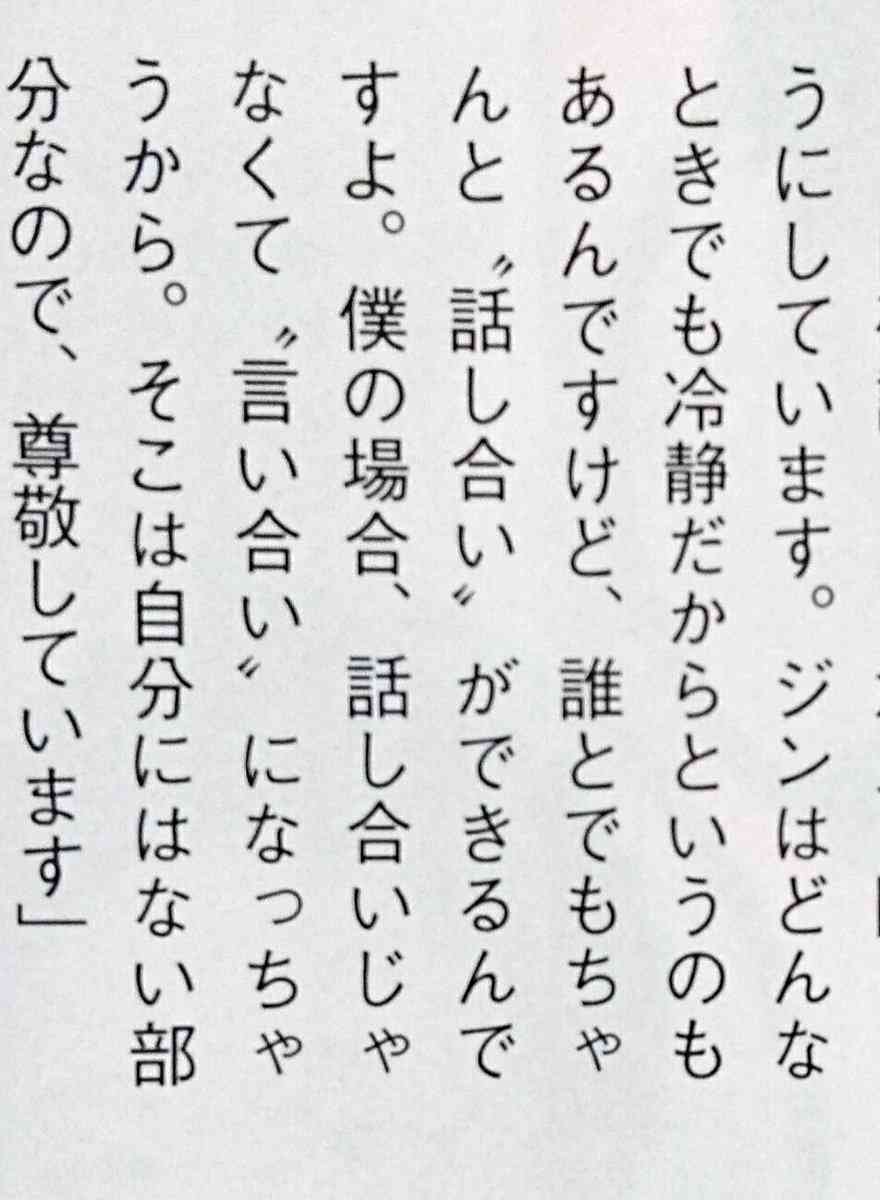 うにしています。ジンはどんな
ときでも冷静だからというのも
あるんですけど、誰とでもちゃ
んと〝話し合い〟ができるんで
すよ。僕の場合、話し合いじゃ
なくて〝言い合い〟になっちゃ
うから。そこは自分にはない部
分なので、尊敬しています」